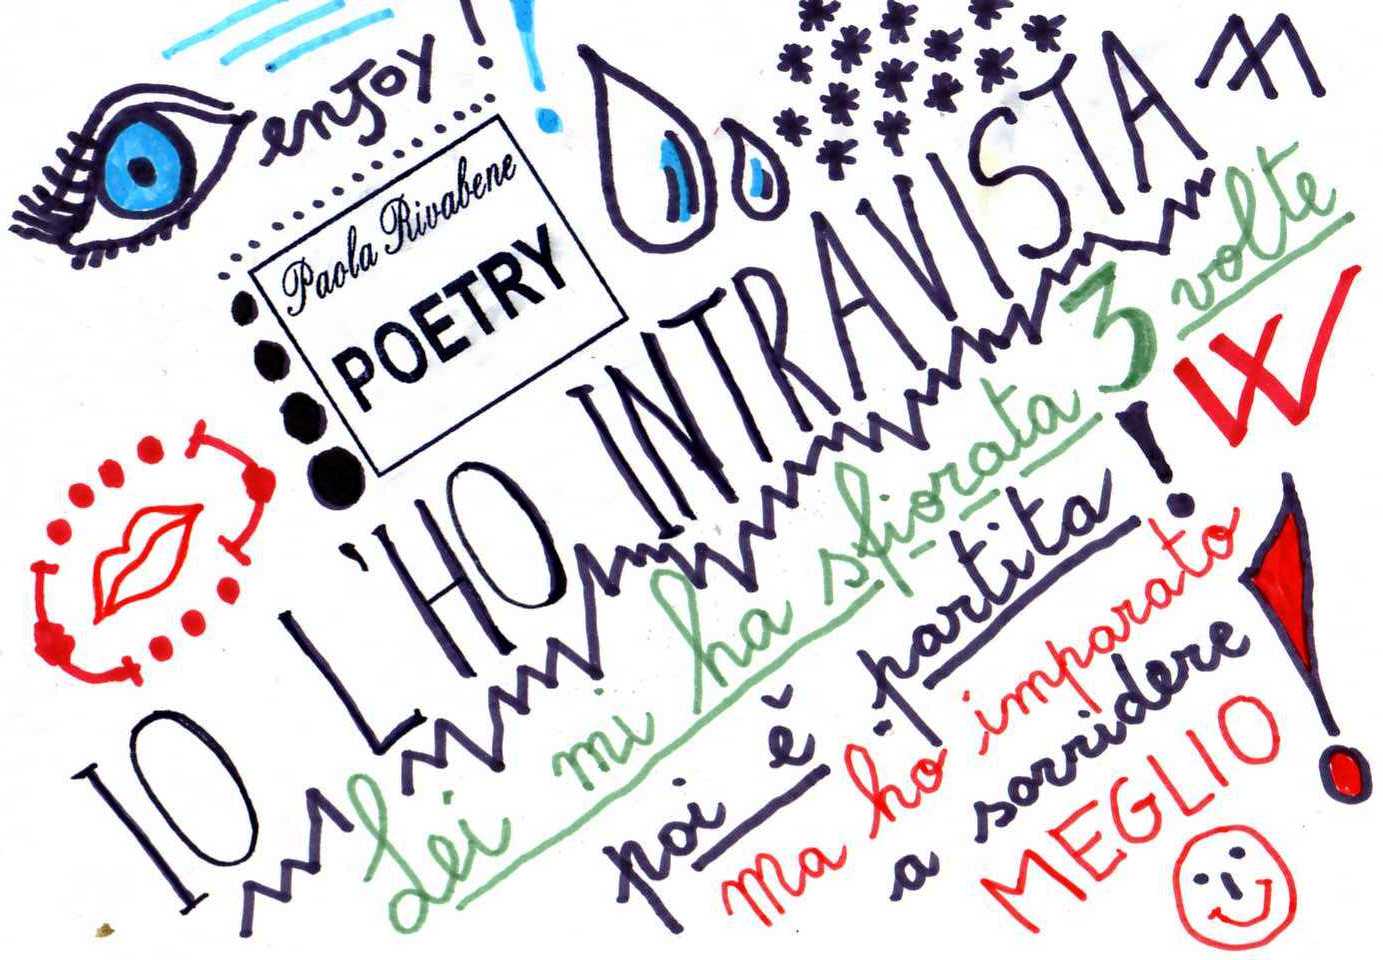 enJoy!
!
Paola Rivabene
POETRY
IO L'HO INTRAVISTA
Lei mi ha sfiorata 3 volte
poi è partita!
ma ho imparato
a sorridere
MEGLIO!